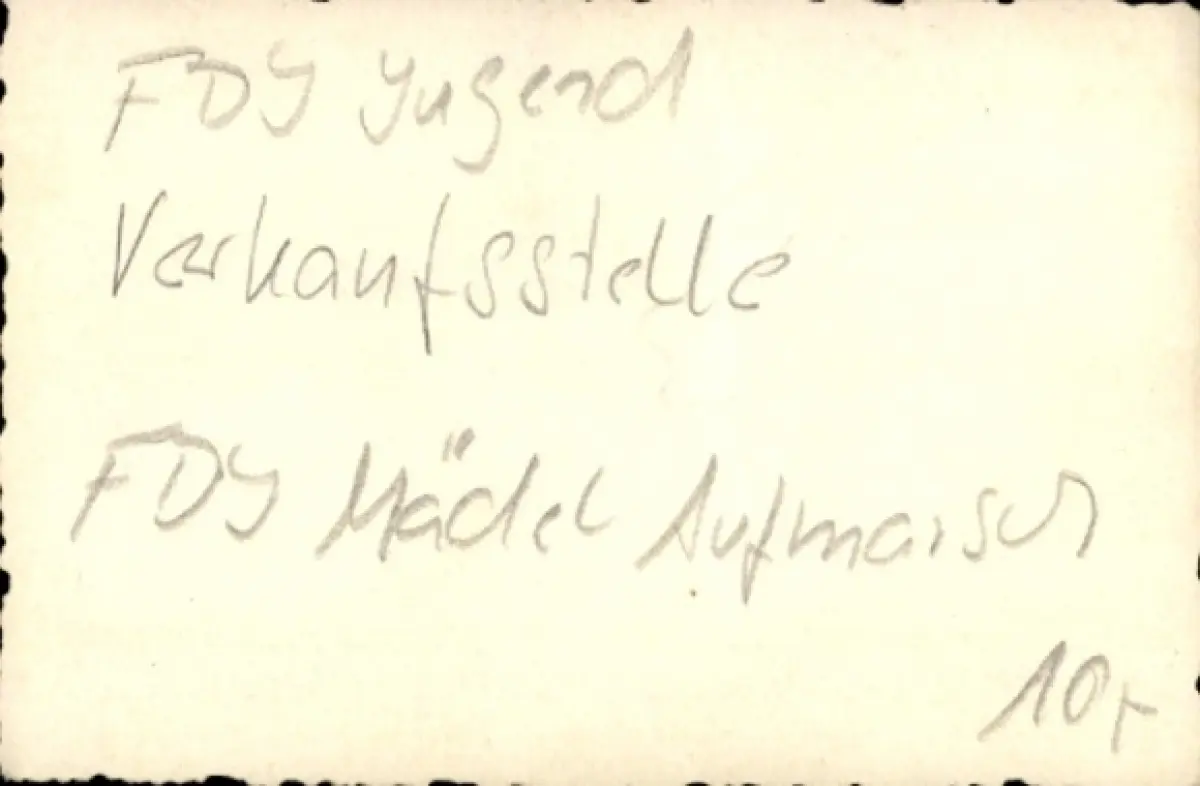 FDJ Jugend
Verkaufsstelle
FDJ Mädel Aufmarsch
10,-